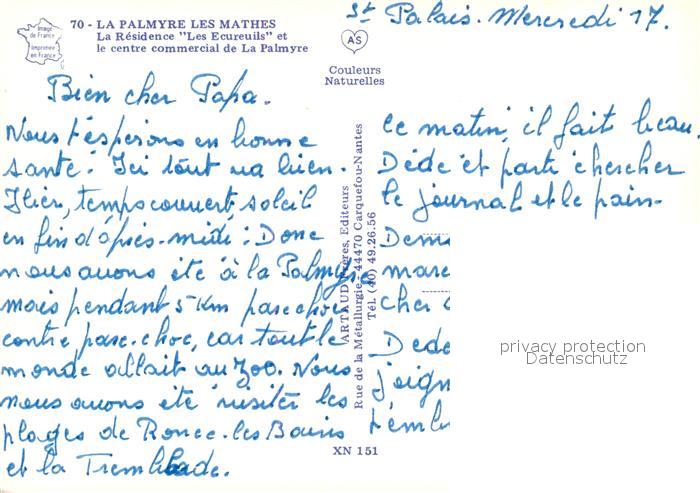 Image de France
Imprimée en France
70 - LA PALMYRE LES MATHES
La Résidence "Les Ecureuils" et
le centre commercial de La Palmyre
AS
Couleurs
Naturelles
St Palais. Mercredi 17.
Bien cher Papa.
Nous t'espérons en bonne
santé. Ici tout va bien.
Hier, temps couvert, soleil
en fin d'après-midi: Donc
nous avons été à la Palmyre
mais pendant 5 Km pare choc
contre pare-choc, car tout le
monde allait au Zoo. Nous
nous avons été visiter les
plages de Ronce-les Bains
et la Tremblade.
ARTAUD Frères, Editeurs
Rue de la Métallurgie - 44470 Carquefou-Nantes
Tél. (40) 49.26.56
XN 151
ce matin, il fait beau.
Dédé et parti chercher
le journal et le pain-
Dem
marc
cher
Dédé
joign
t'emb
privacy protection
Datenschutz